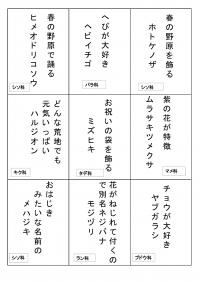 春の野原を飾る
ホトケノザ
シソ科
へびが大好き
ヘビイチゴ
バラ科
春の野原で踊る
ヒメオドリコソウ
シソ科
紫の花が特徴
ムラサキツメクサ
マメ科
お祝いの袋を飾る
ミズヒキ
タデ科
どんな荒地でも
元気いっぱい
ハルジオン
キク科
チョウが大好き
ヤブガラシ
ブドウ科
花がねじれて付くの
で別名ネジバナ
モジズリ
ラン科
おはじき
みたいな名前の
メハジキ
シソ科